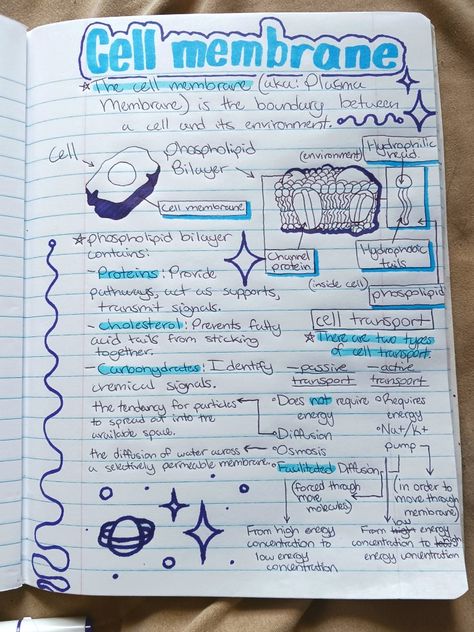 Cell membrane
☆The cell membrane (aka: Plasma
Membrane) is the boundary between
a cell and its environment.
Cell
Cell membrane
Phospholipid
Bilayer
(environment)
Channel
protein
(inside cell)
Hydrophilic
head.
Hydrophobic
tails
phospolipid
☆phospholipid bilayer
contains:
-Proteins: Provide
pathways, act as supports,
transmit signals.
-cholesterol: Prevents fatty
acid tails from sticking
together.
-Carbohydrates: Identify
chemical signals.
cell transport
☆There are two types
of cell transport.
-passive
transport
-active
transport
°Does not require
energy
°Requires
energy
°Diffusion
°Na+/K+
pump
the tendency for particles
to spread out into the
available space.
°Osmosis
the diffusion of water across
a selectively permeable membrane.
°Facilitated Diffusion
(forced through
more
molecules)
(in order to
move through
membrane)
From high energy
concentration to
low energy
concentration
From high low energy
concentration to low high
energy concentration